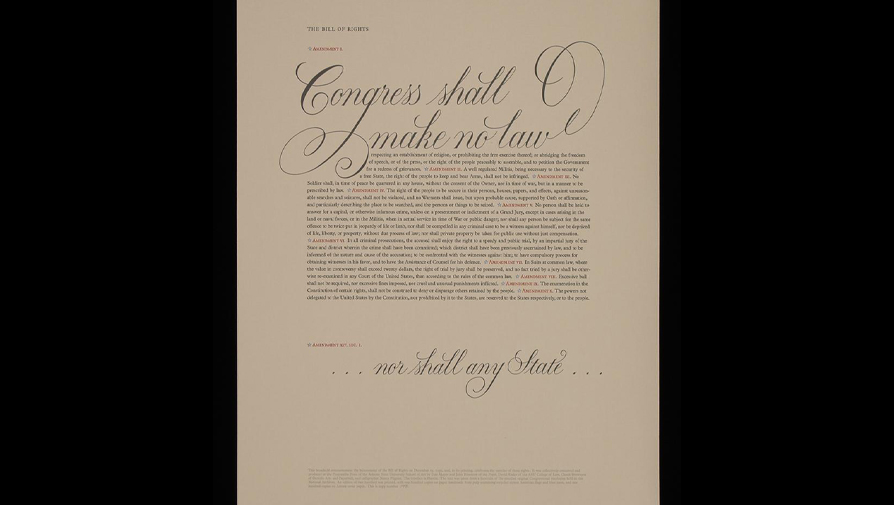 THE BILL OF RIGHTS
☆ AMENDMENT I.
Congress shall
make no law
respecting an establishment of religion, or prohibiting the free exercise thereof; or abridging the freedom
of speech, or of the press, or the right of the people peaceably to assemble, and to petition the Government
for a redress of grievances. ☆ AMENDMENT II. A well regulated Militia, being necessary to the security of
a free State, the right of the people to keep and bear Arms, shall not be infringed. ☆ AMENDMENT III. No
Soldier shall, in time of peace be quartered in any house, without the consent of the Owner, nor in time of war, but in a manner to be
prescribed by law. ☆ AMENDMENT IV. The right of the people to be secure in their persons, houses, papers, and effects, against unreason-
able searches and seizures, shall not be violated, and no Warrants shall issue, but upon probable cause, supported by Oath or affirmation,
and particularly describing the place to be searched, and the persons or things to be seized. ☆ AMENDMENT V. No person shall be held to
answer for a capital, or otherwise infamous crime, unless on a presentment or indictment of a Grand Jury, except in cases arising in the
land or naval forces, or in the Militia, when in actual service in time of War or public danger; nor shall any person be subject for the same
offence to be twice put in jeopardy of life or limb; nor shall be compelled in any criminal case to be a witness against himself, nor be deprived
of life, liberty, or property, without due process of law; nor shall private property be taken for public use without just compensation.
☆ AMENDMENT VI. In all criminal prosecutions, the accused shall enjoy the right to a speedy and public trial, by an impartial jury of the
State and district wherein the crime shall have been committed; which district shall have been previously ascertained by law, and to be
informed of the nature and cause of the accusation; to be confronted with the witnesses against him; to have compulsory process for
obtaining witnesses in his favor, and to have the Assistance of Counsel for his defence. ☆ AMENDMENT VII. In Suits at common law, where
the value in controversy shall exceed twenty dollars, the right of trial by jury shall be preserved, and no fact tried by a jury shall be other-
wise re-examined in any Court of the United States, than according to the rules of the common law. ☆ AMENDMENT VIII. Excessive bail
shall not be required, nor excessive fines imposed, nor cruel and unusual punishments inflicted. ☆ AMENDMENT IX. The enumeration in the
Constitution of certain rights, shall not be construed to deny or disparage others retained by the people. ☆ AMENDMENT X. The powers not
delegated to the United States by the Constitution, nor prohibited by it to the States, are reserved to the States respectively, or to the people.
☆ AMENDMENT XIV, SEC. 1.
. . . nor shall any State . . .